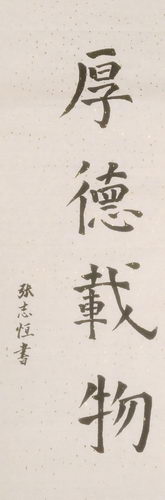 厚德載物
张志恒書